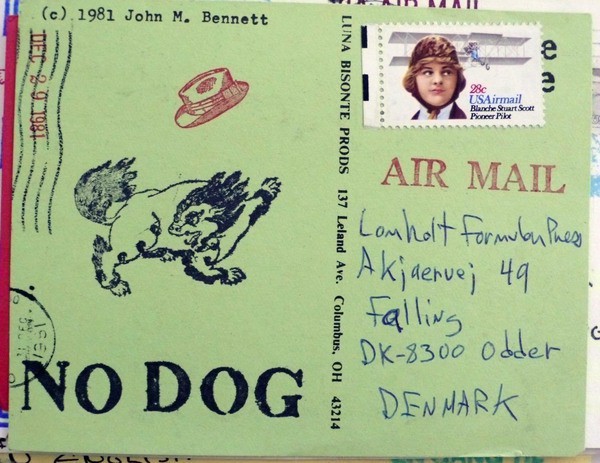 (c) 1981 John M. Bennett
DEC 29 1981
NO DOG
LUNA BISONTE PRODS 137 Leland Ave. Columbus, OH 43214
28c
USAirmail
Blanche Stuart Scott
Pioneer Pilot
AIR MAIL
Lomholt Formular Press
Akjaervej 49
Falling
DK-8300 Odder
DENMARK
AIR MAIL